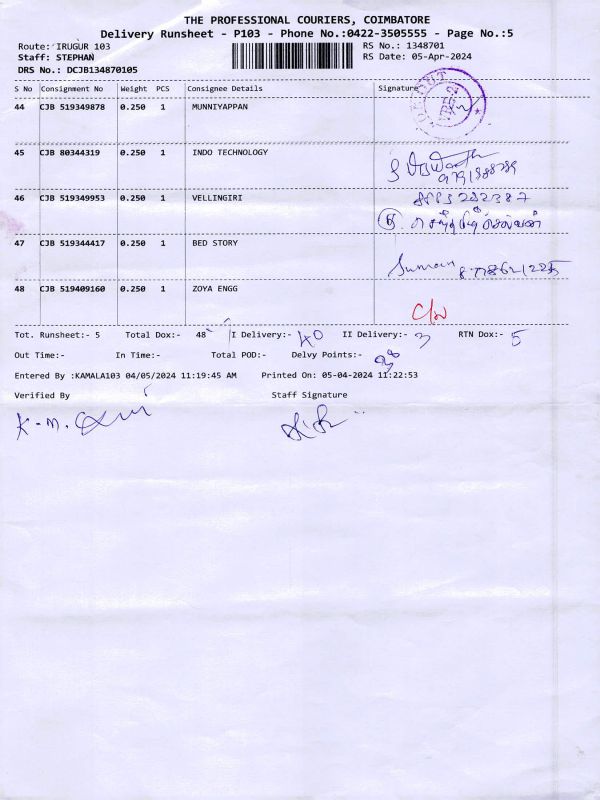 THE PROFESSIONAL COURIERS, COIMBATORE
Delivery Runsheet - P103 - Phone No.:0422-3505555 - Page No.:5
Route: IRUGUR 103 RS No.: 1348701
Staff: STEPHAN RS Date: 05-Apr-2024
DRS No.: DCJB134870105
S No Consignment No Weight PCS Consignee Details Signature
44 CJB 519349878 0.250 1 MUNNIYAPPAN
45 CJB 80344319 0.250 1 INDO TECHNOLOGY
46 CJB 519349953 0.250 1 VELLINGIRI
47 CJB 519344417 0.250 1 BED STORY Suman
48 CJB 519409160 0.250 1 ZOYA ENGG
Tot. Runsheet:- 5 Total Dox:- 48 I Delivery:- 40 II Delivery:- 3 RTN Dox:- 5
Out Time:- In Time:- Total POD:- Delvy Points:-
Entered By :KAMALA103 04/05/2024 11:19:45 AM Printed On: 05-04-2024 11:22:53
Verified By Staff Signature